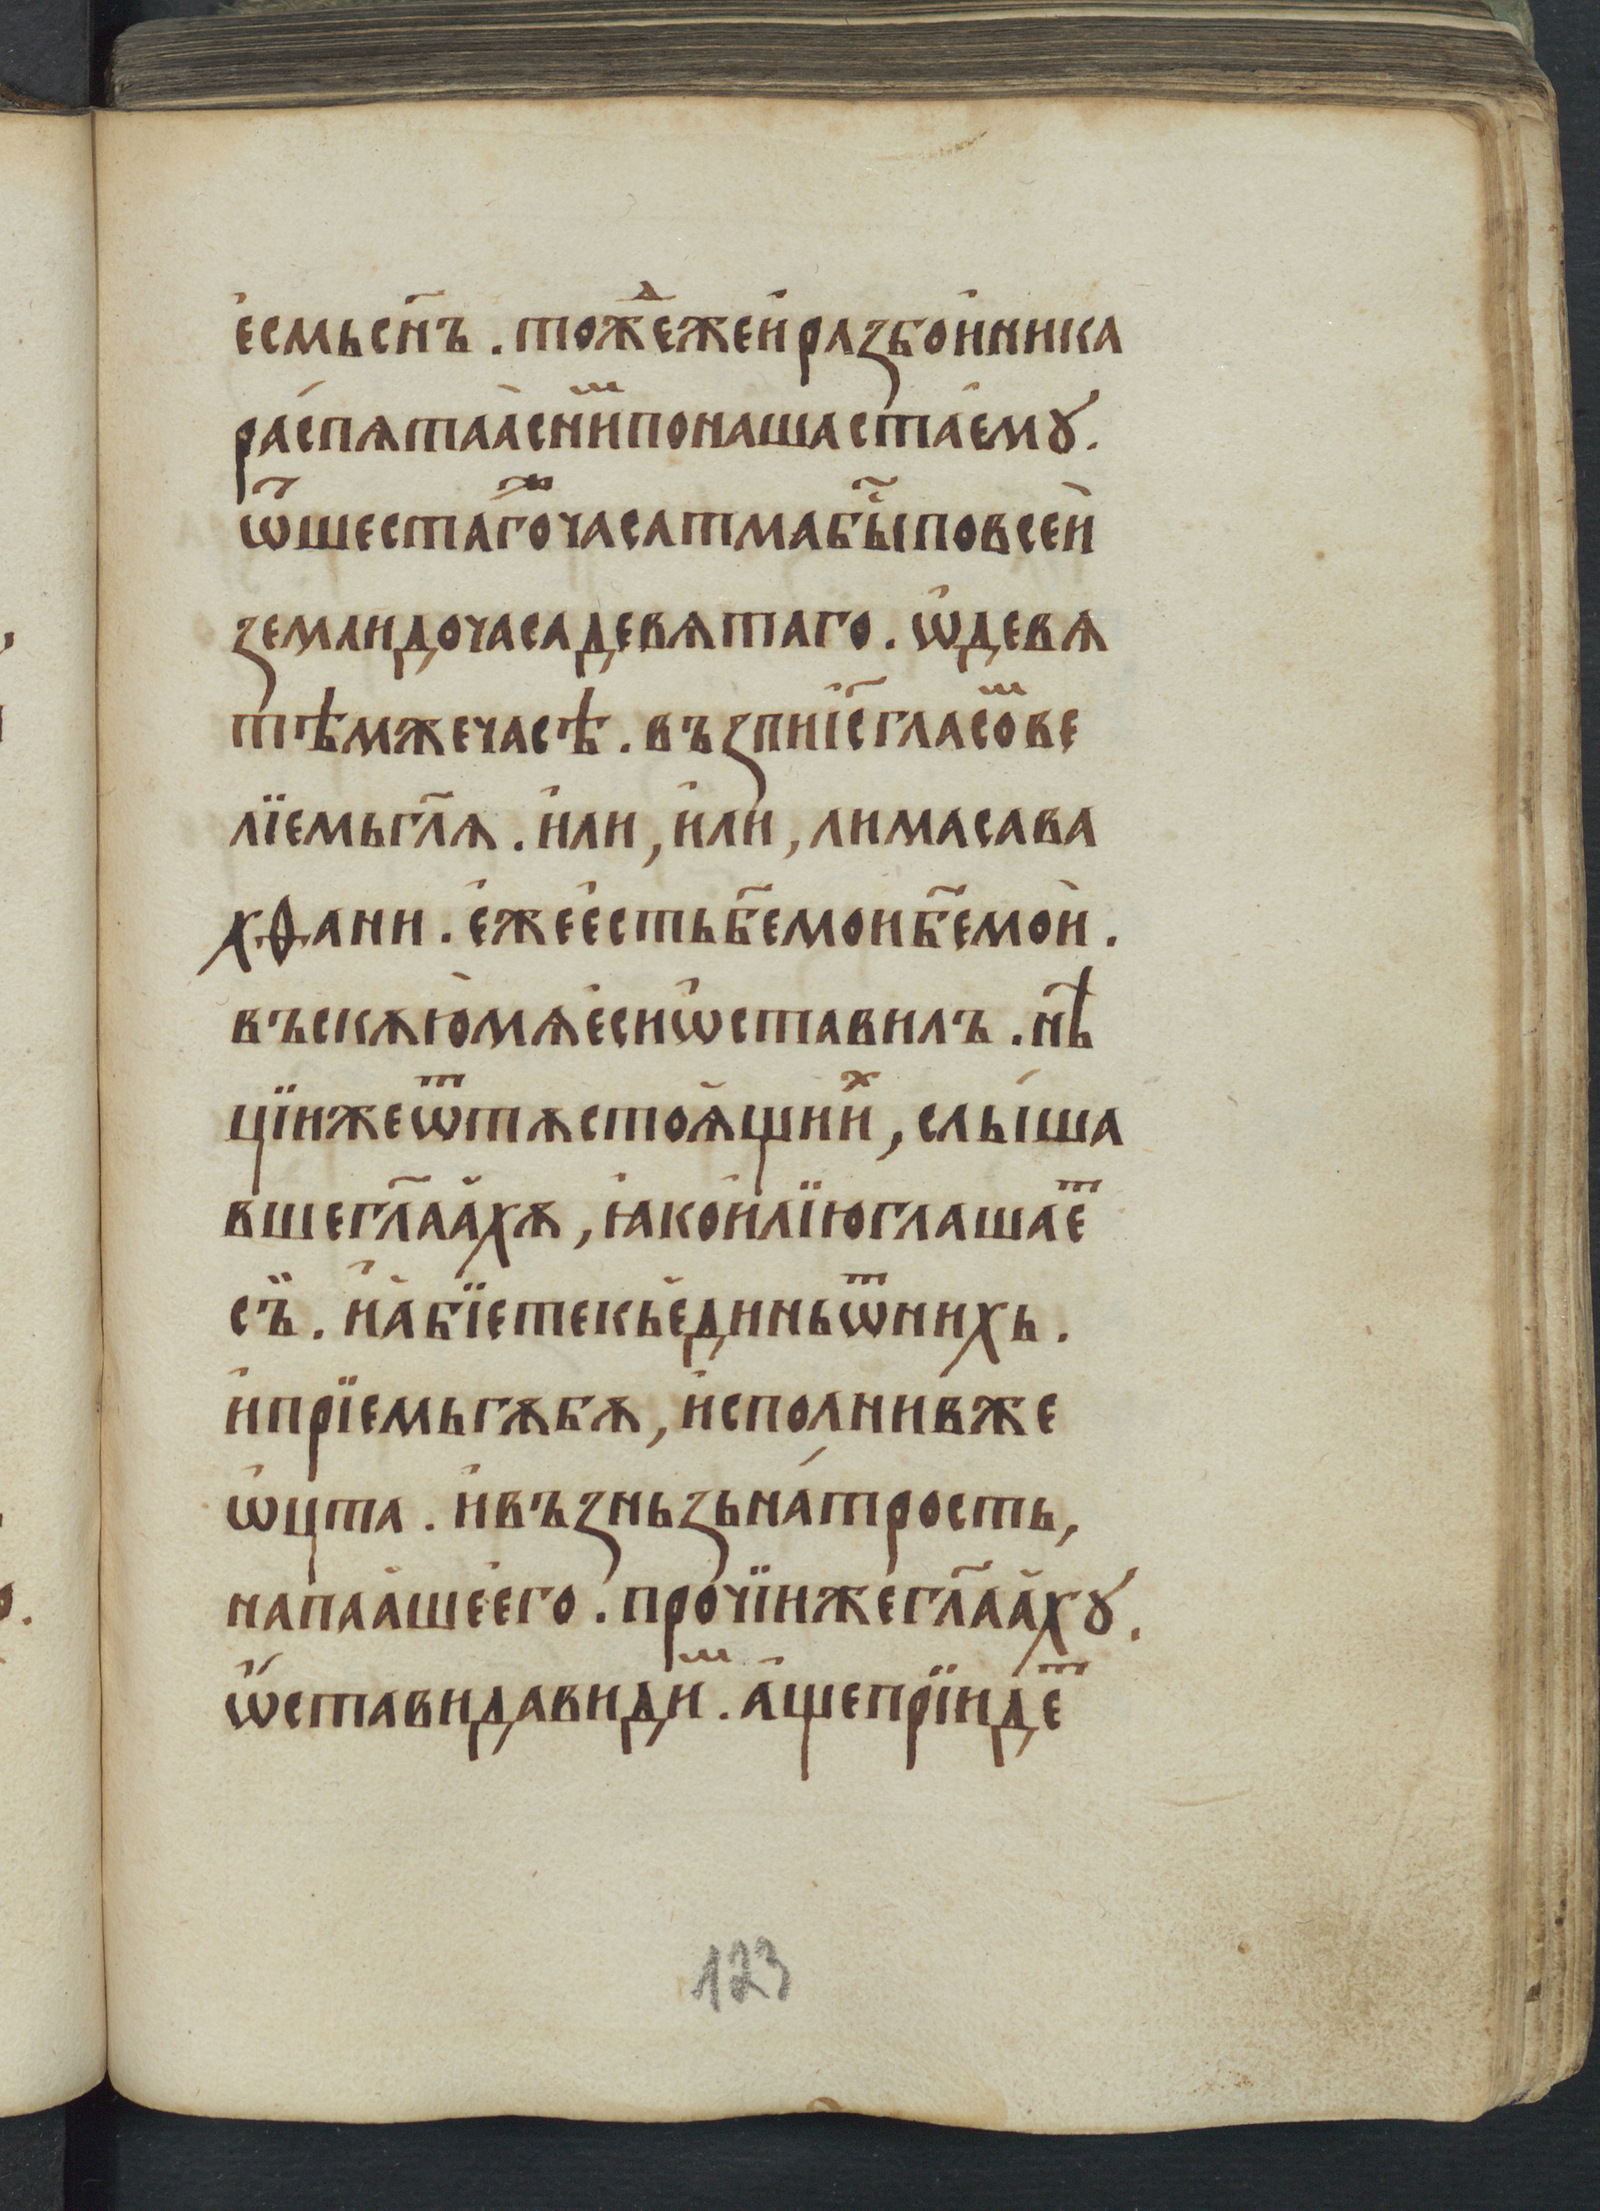 е҆смьсн҃ъ . тожⷣежеи҆разбои҆ника
ра́спѧтаа҆сни́мⷨпонашастае҆мꙋ .
ѿшестагⷤочасатмабы҃повсеѝ
землидочасадевѧтаго . ѡ҆девѧ
тѣмжечасѣ . възпиі҆с҃гласоⷨве
лїемьгл҃ѧ . и҆ли , и҆ли , лимасава
хѳани . е҆жее҆стьбе҃моибе҃моѝ .
въскѫю҆мѧе҆сиѡ҆ставилъ . нѣ
цїижеѿтѫстоѧ҆щииⷯ , слы́ша
вшегл҃аа҆хѫ , ꙗ҆кои҆лїюглашаеⷮ
съ̈ . и҆а҆бїетекъе҆диньѿнихь .
и҆прїемьгѫбѫ , и҆сполнивже
ѡ҆цта . и҆възньзьна́трость ,
напаа҆шее҆го . прочїижегл҃аа҆хꙋ .
ѡ҆ставидавидиⷨ . а҆щепрїидеⷮ
123